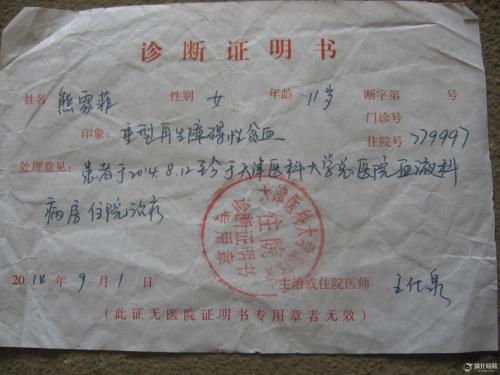 诊断证明书
姓名 熊雪菲 性别 女 年龄 11岁 断字第 号
门诊号
印象: 重型再生障碍性贫血 住院号 779997
处理意见: 患者于2014.8.12至今于天津医科大学总医院血液科
病房住院治疗
天津医科大学
住院
诊断证明书
专用章
2014年9月1日 主治或住院医师 王仕泉
(此证无医院证明书专用章者无效)